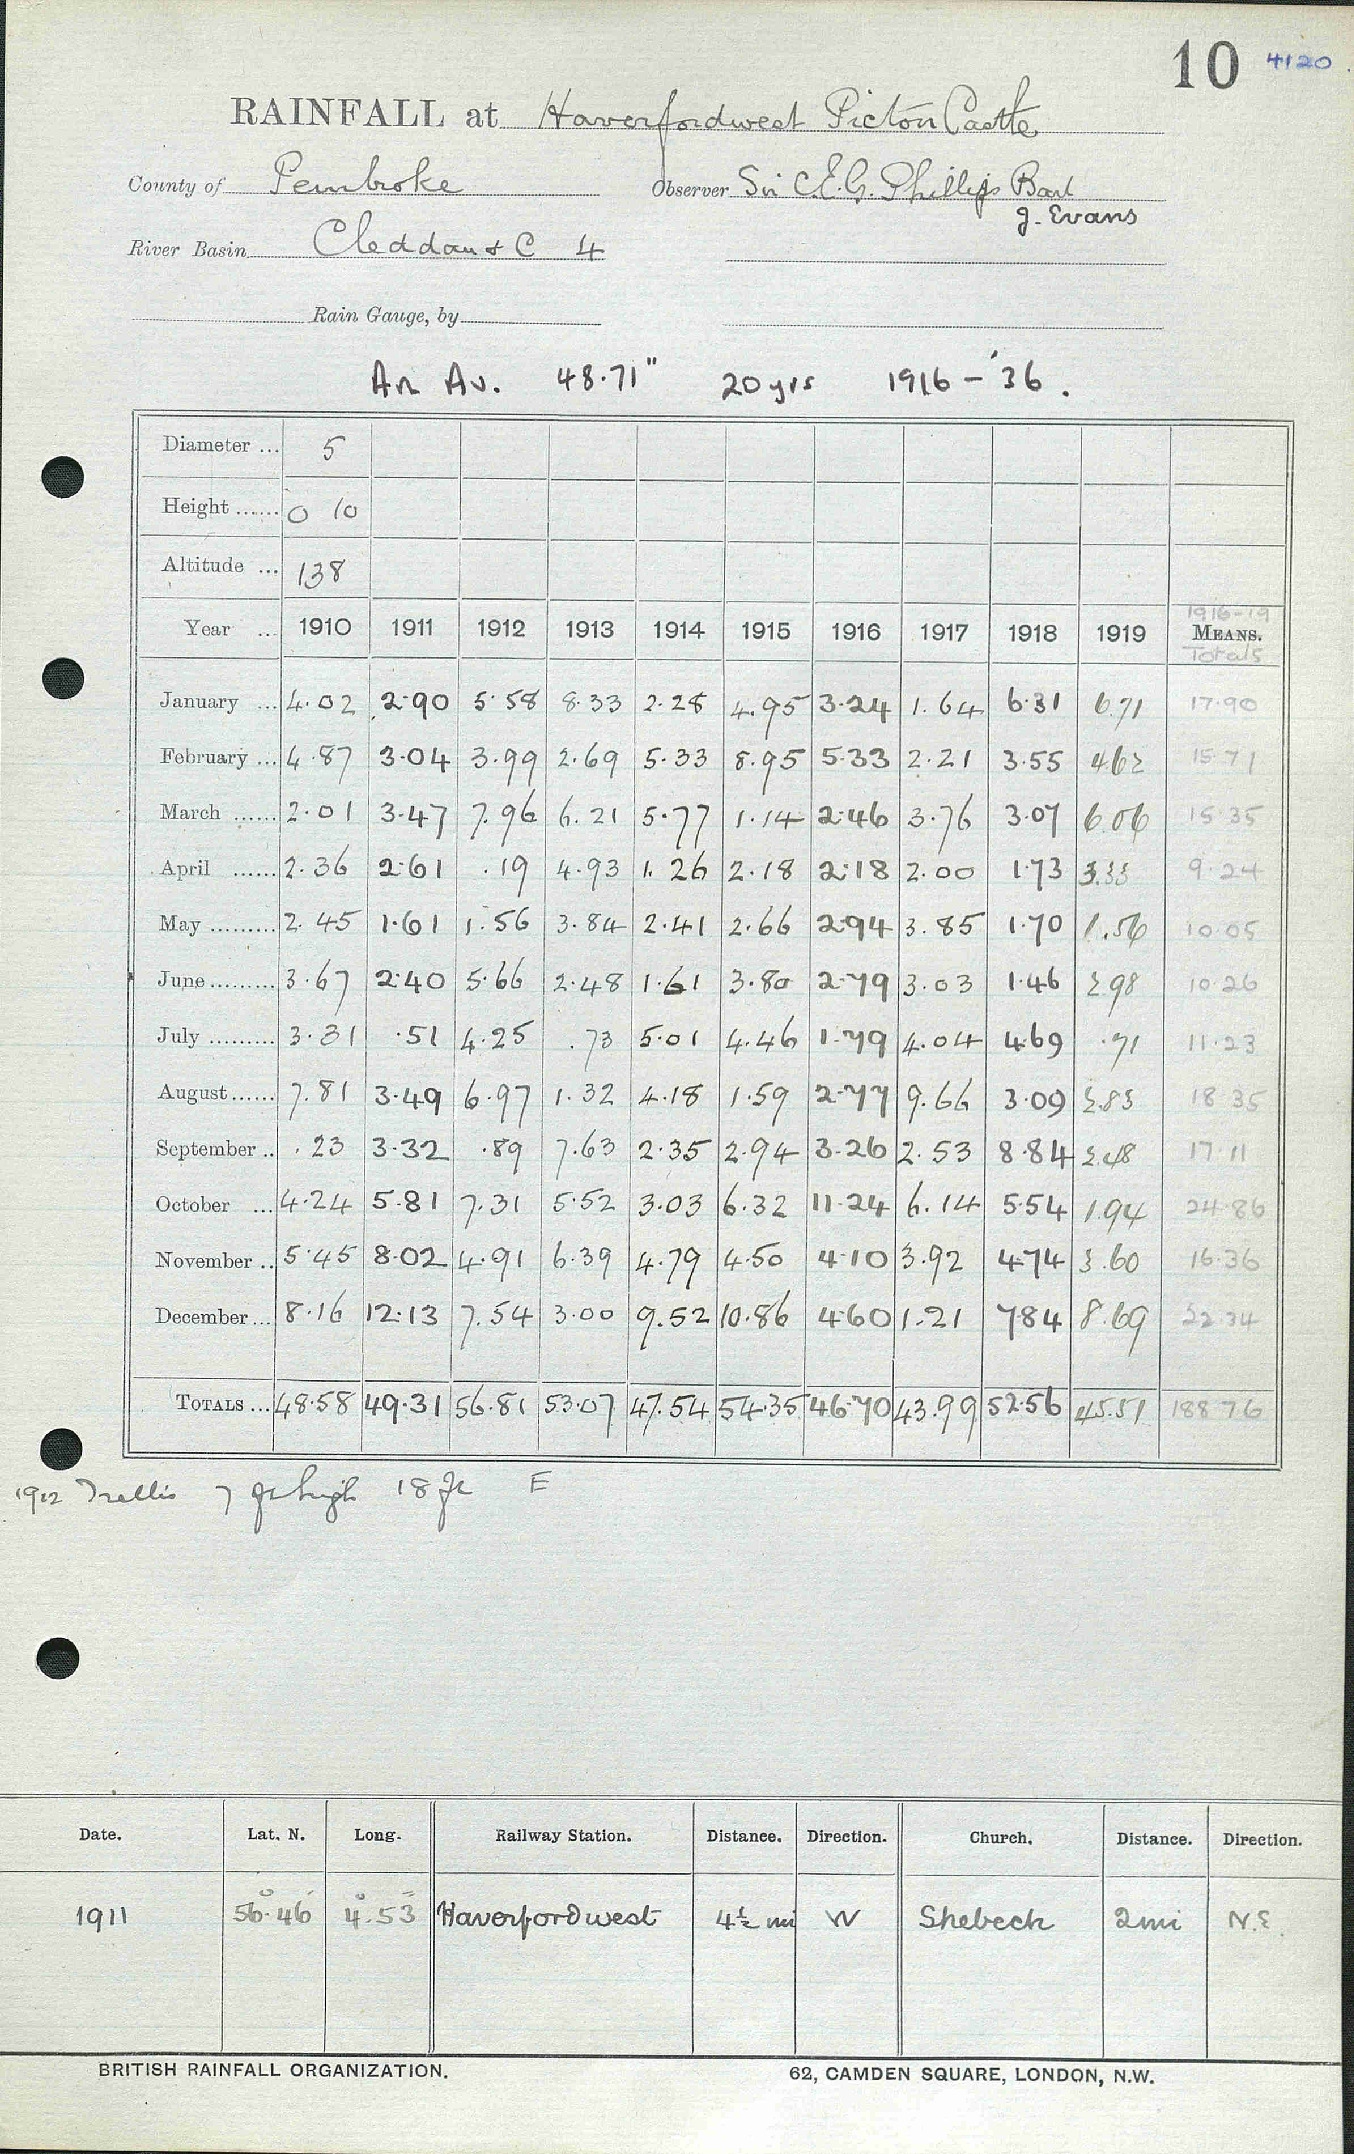 10 4120
RAINFALL at Haverfordwest Picton Castle
County of Pembroke Observer Sir C.E.G. Phillips Bart
J. Evans
River Basin Cleddau & C 4
Rain Gauge, by
An Av. 48.71" 20 yrs 1916 – '36.
Diameter ... 5
Height ...... 0 10
Altitude ... 138
1916-19
Year ... 1910 1911 1912 1913 1914 1915 1916 1917 1918 1919 MEANS.
Totals
January ... 4.02 2.90 5.58 8.33 2.28 4.95 3.24 1.64 6.31 6.71 17.90
February ... 4.87 3.04 3.99 2.69 5.33 8.95 5.33 2.21 3.55 4.62 15.71
March ...... 2.01 3.47 7.96 6.21 5.77 1.14 2.46 3.76 3.07 6.06 15.35
April ...... 2.36 2.61 .19 4.93 1.26 2.18 2.18 2.00 1.73 3.33 9.24
May ......... 2.45 1.61 1.56 3.84 2.41 2.66 2.94 3.85 1.70 1.56 10.05
June ......... 3.67 2.40 5.66 2.48 1.61 3.80 2.79 3.03 1.46 2.98 10.26
July ......... 3.31 .51 4.25 .73 5.01 4.46 1.79 4.04 4.69 .71 11.23
August ...... 7.81 3.49 6.97 1.32 4.18 1.59 2.77 9.66 3.09 2.83 18.35
September .. .23 3.32 .89 7.63 2.35 2.94 3.26 2.53 8.84 2.48 17.11
October ... 4.24 5.81 7.31 5.52 3.03 6.32 11.24 6.14 5.54 1.94 24.86
November .. 5.45 8.02 4.91 6.39 4.79 4.50 4.10 3.92 4.74 3.60 16.36
December ... 8.16 12.13 7.54 3.00 9.52 10.86 4.60 1.21 7.84 8.69 22.34
TOTALS ... 48.58 49.31 56.81 53.07 47.54 54.35 46.70 43.99 52.56 45.51 188.76
1912 Trellis 7 ft high 18 ft E
Date. Lat. N. Long. Railway Station. Distance. Direction. Church. Distance. Direction.
1911 56°46' 4°53' Haverfordwest 4½ mi W Shebeck 2 mi N.E.
BRITISH RAINFALL ORGANIZATION. 62, CAMDEN SQUARE, LONDON, N.W.